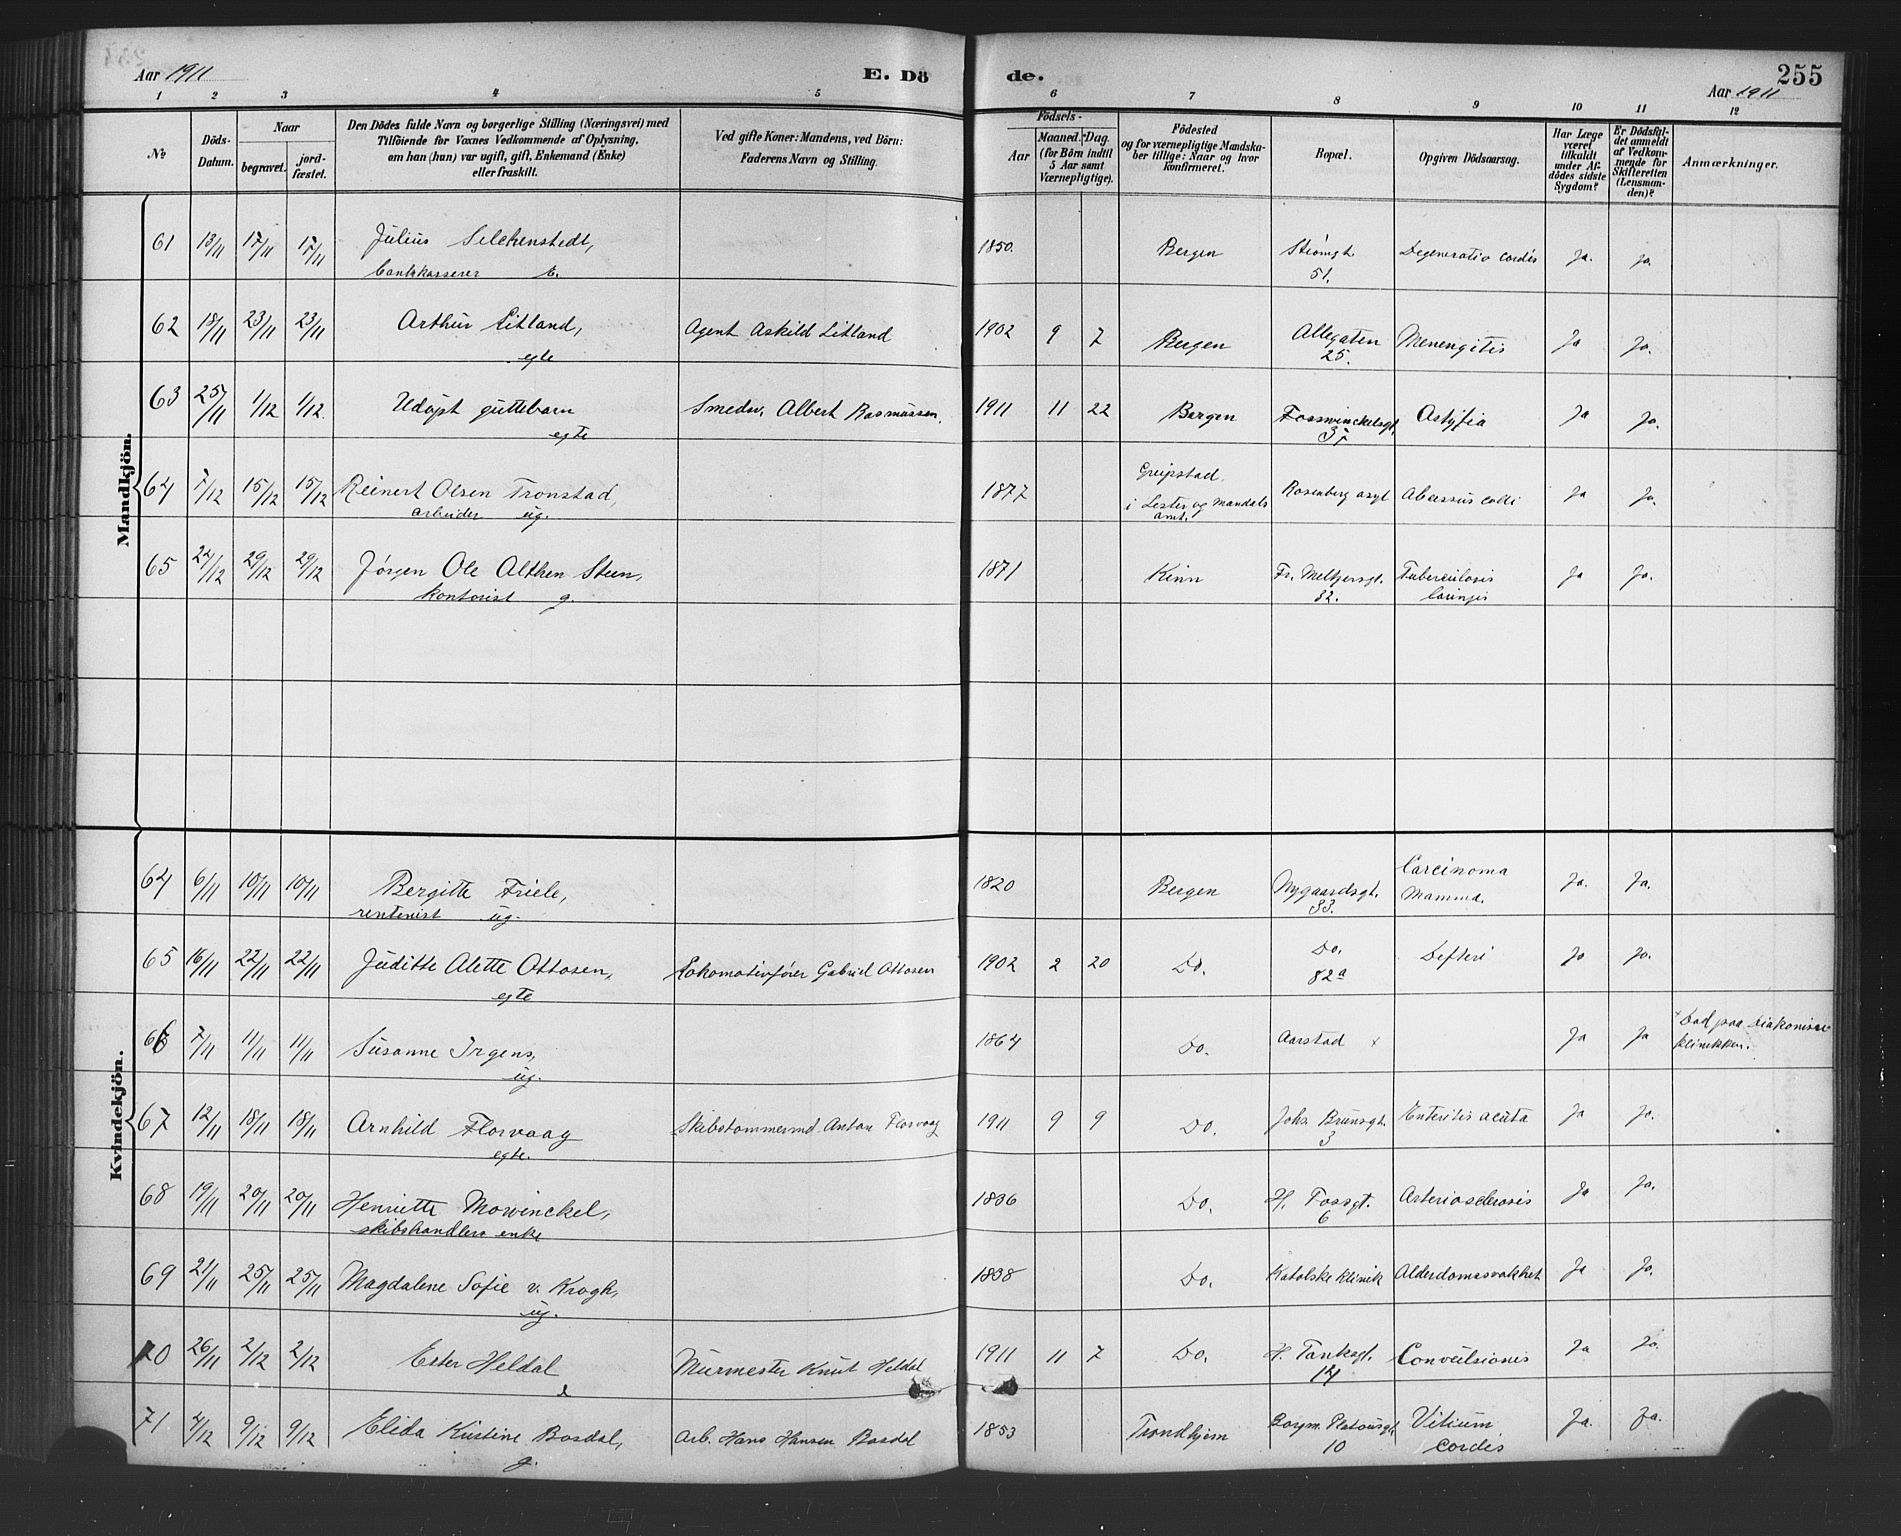 Aar 1911
E. Dö
de.
255
Aar 1911
1 2 3 4 5 6 7 8 9 10 11 12
No
Döds-Datum.
Naar
begravet.
jord-fæstet.
Den Dödes fulde Navn og borgerlige Stilling (Næringsvei) med
Tilföiende for Voxnes Vedkommende af Oplysning,
om han (hun) var ugift, gift, Enkemand (Enke)
eller fraskilt.
Ved gifte Koner: Mandens, ved Börn:
Faderens Navn og Stilling.
Födsels-
Aar
Maaned. Dag.
(for Börn indtil
5 Aar samt
Værnepligtige).
Födested
og for værnepligtige Mandska-
ber tillige: Naar og hvor
konfirmeret.
Bopæl.
Opgiven Dödsaarsag.
Har Læge
været
tilkaldt
under Af-
dödes sidste
Sygdom?
Er Dödsfal-
det anmeldt
af Vedkom-
mende for
Skifteretten
(Lensman-
den)?
Anmærkninger.
Mandkjön.
61 13/11 17/11 17/11 Julius Selchenstedt, 1850. Bergen Strömgt. Degeneratio cordis Ja. Ja.
bankkasserer E. 51.
62 18/11 23/11 23/11 Arthur Litland, Agent Askild Litland 1902 9 7 Bergen Allegaten Menengitis Ja Ja.
egte 25.
63 25/11 1/12 1/12. Udöpt guttebarn Smedsv. Albert Rasmussen. 1911 11 22 Bergen Fosswinckelsgt. Astyfia Ja Ja.
egte
64 7/12 15/12 15/12 Reinert Olsen Tronstad, 1877 Greipstad Rosenberg asyl Abcessus colli Ja Ja.
arbeider ug. i Lester og Mandals
amt.
65 24/12 29/12 29/12 Jörgen Ole Althen Steen, 1871 Kinn Fr. Meltzersgt. Tuberculosis Ja Ja.
Kontorist g. 82. laringis
Kvindekjön.
64 6/11 10/11 10/11 Bergitte Friele, 1820 Bergen Nygaardsgt. Carcinoma Ja. Ja.
rentenist ug. 33. Mamma.
65 16/11 22/11 22/11 Juditte Alette Ottosen, Lokomotivfører Gabriel Ottosen 1902 2 20 Do. Do. Defteri Ja Ja.
egte 82a
66 7/11 11/11 11/11 Susanne Irgens, 1864 Do. Aarstad x Ja Ja x Död paa Diakonisse
ug. klinikken.
67 12/11 18/11 18/11 Arnhild Florvaag Skibstømmermd Anton Florvaag 1911 9 9 Do. Johs. Brunsgt. Enteritis acuta Ja Ja.
egte. 3
68 19/11 20/11 20/11 Henriette Mowinckel, 1836 Do. H. Fossgt. Arteriosclerosis Ja Ja.
skibshandlers enke 6
69 21/11 25/11 25/11 Magdalene Sofie v. Krogh, 1838 Do. Katolske klinik Alderdomssvakhet Ja Ja.
ug.
70 26/11 2/12 2/12 Ester Heldal Murmester Knut Heldal 1911 11 7 Do. H. Tanksgt. Convulsionis Ja Ja.
e 14
71 4/12 9/12 9/12 Elida Kristine Bosdal, Arb. Hans Hansen Bosdal 1853 Trondhjem Borgm. Platousgt. Vitium Ja. Ja.
g. 10 cordis